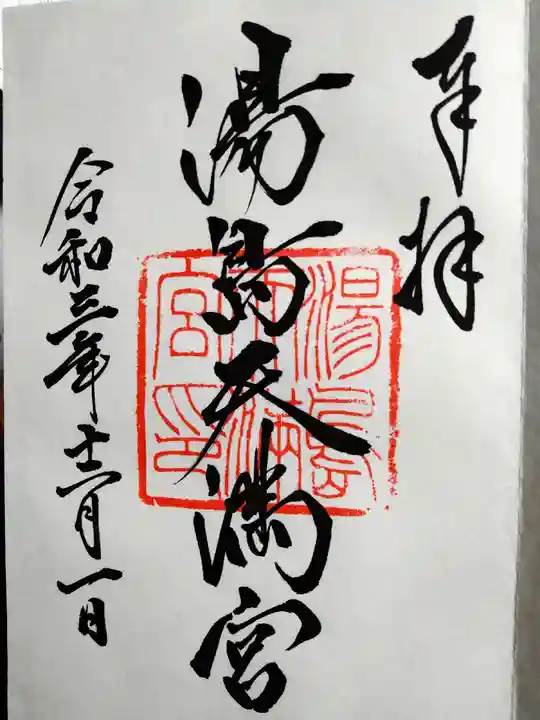 奉拝
湯島天満宮
湯島天満宮印
令和三年十二月一日